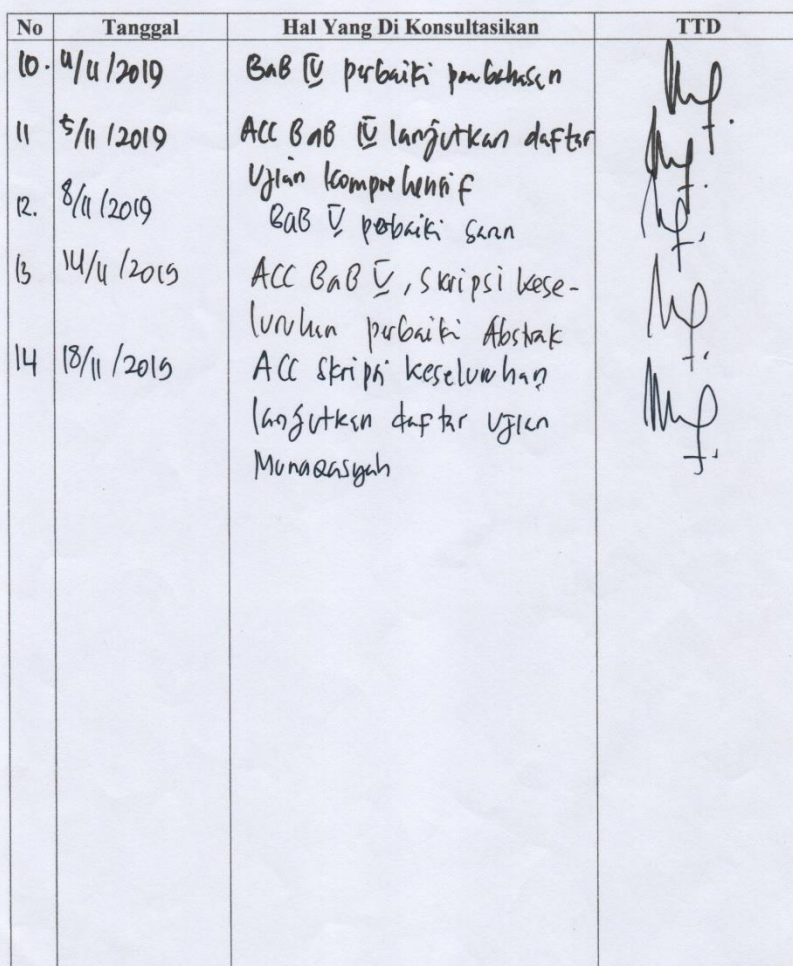 No Tanggal Hal Yang Di Konsultasikan TTD
10. 4/11/2019 BaB IV perbaiki pembahasan
11 5/11/2019 ACC BaB IV lanjutkan daftar
Ujian komprehensif
12. 8/11/2019 BaB V perbaiki saran
13 14/11/2019 ACC BaB V, Skripsi kese-
luruhan perbaiki Abstrak
14 18/11/2019 ACC skripsi keseluruhan
lanjutkan daftar Ujian
Munaqasyah